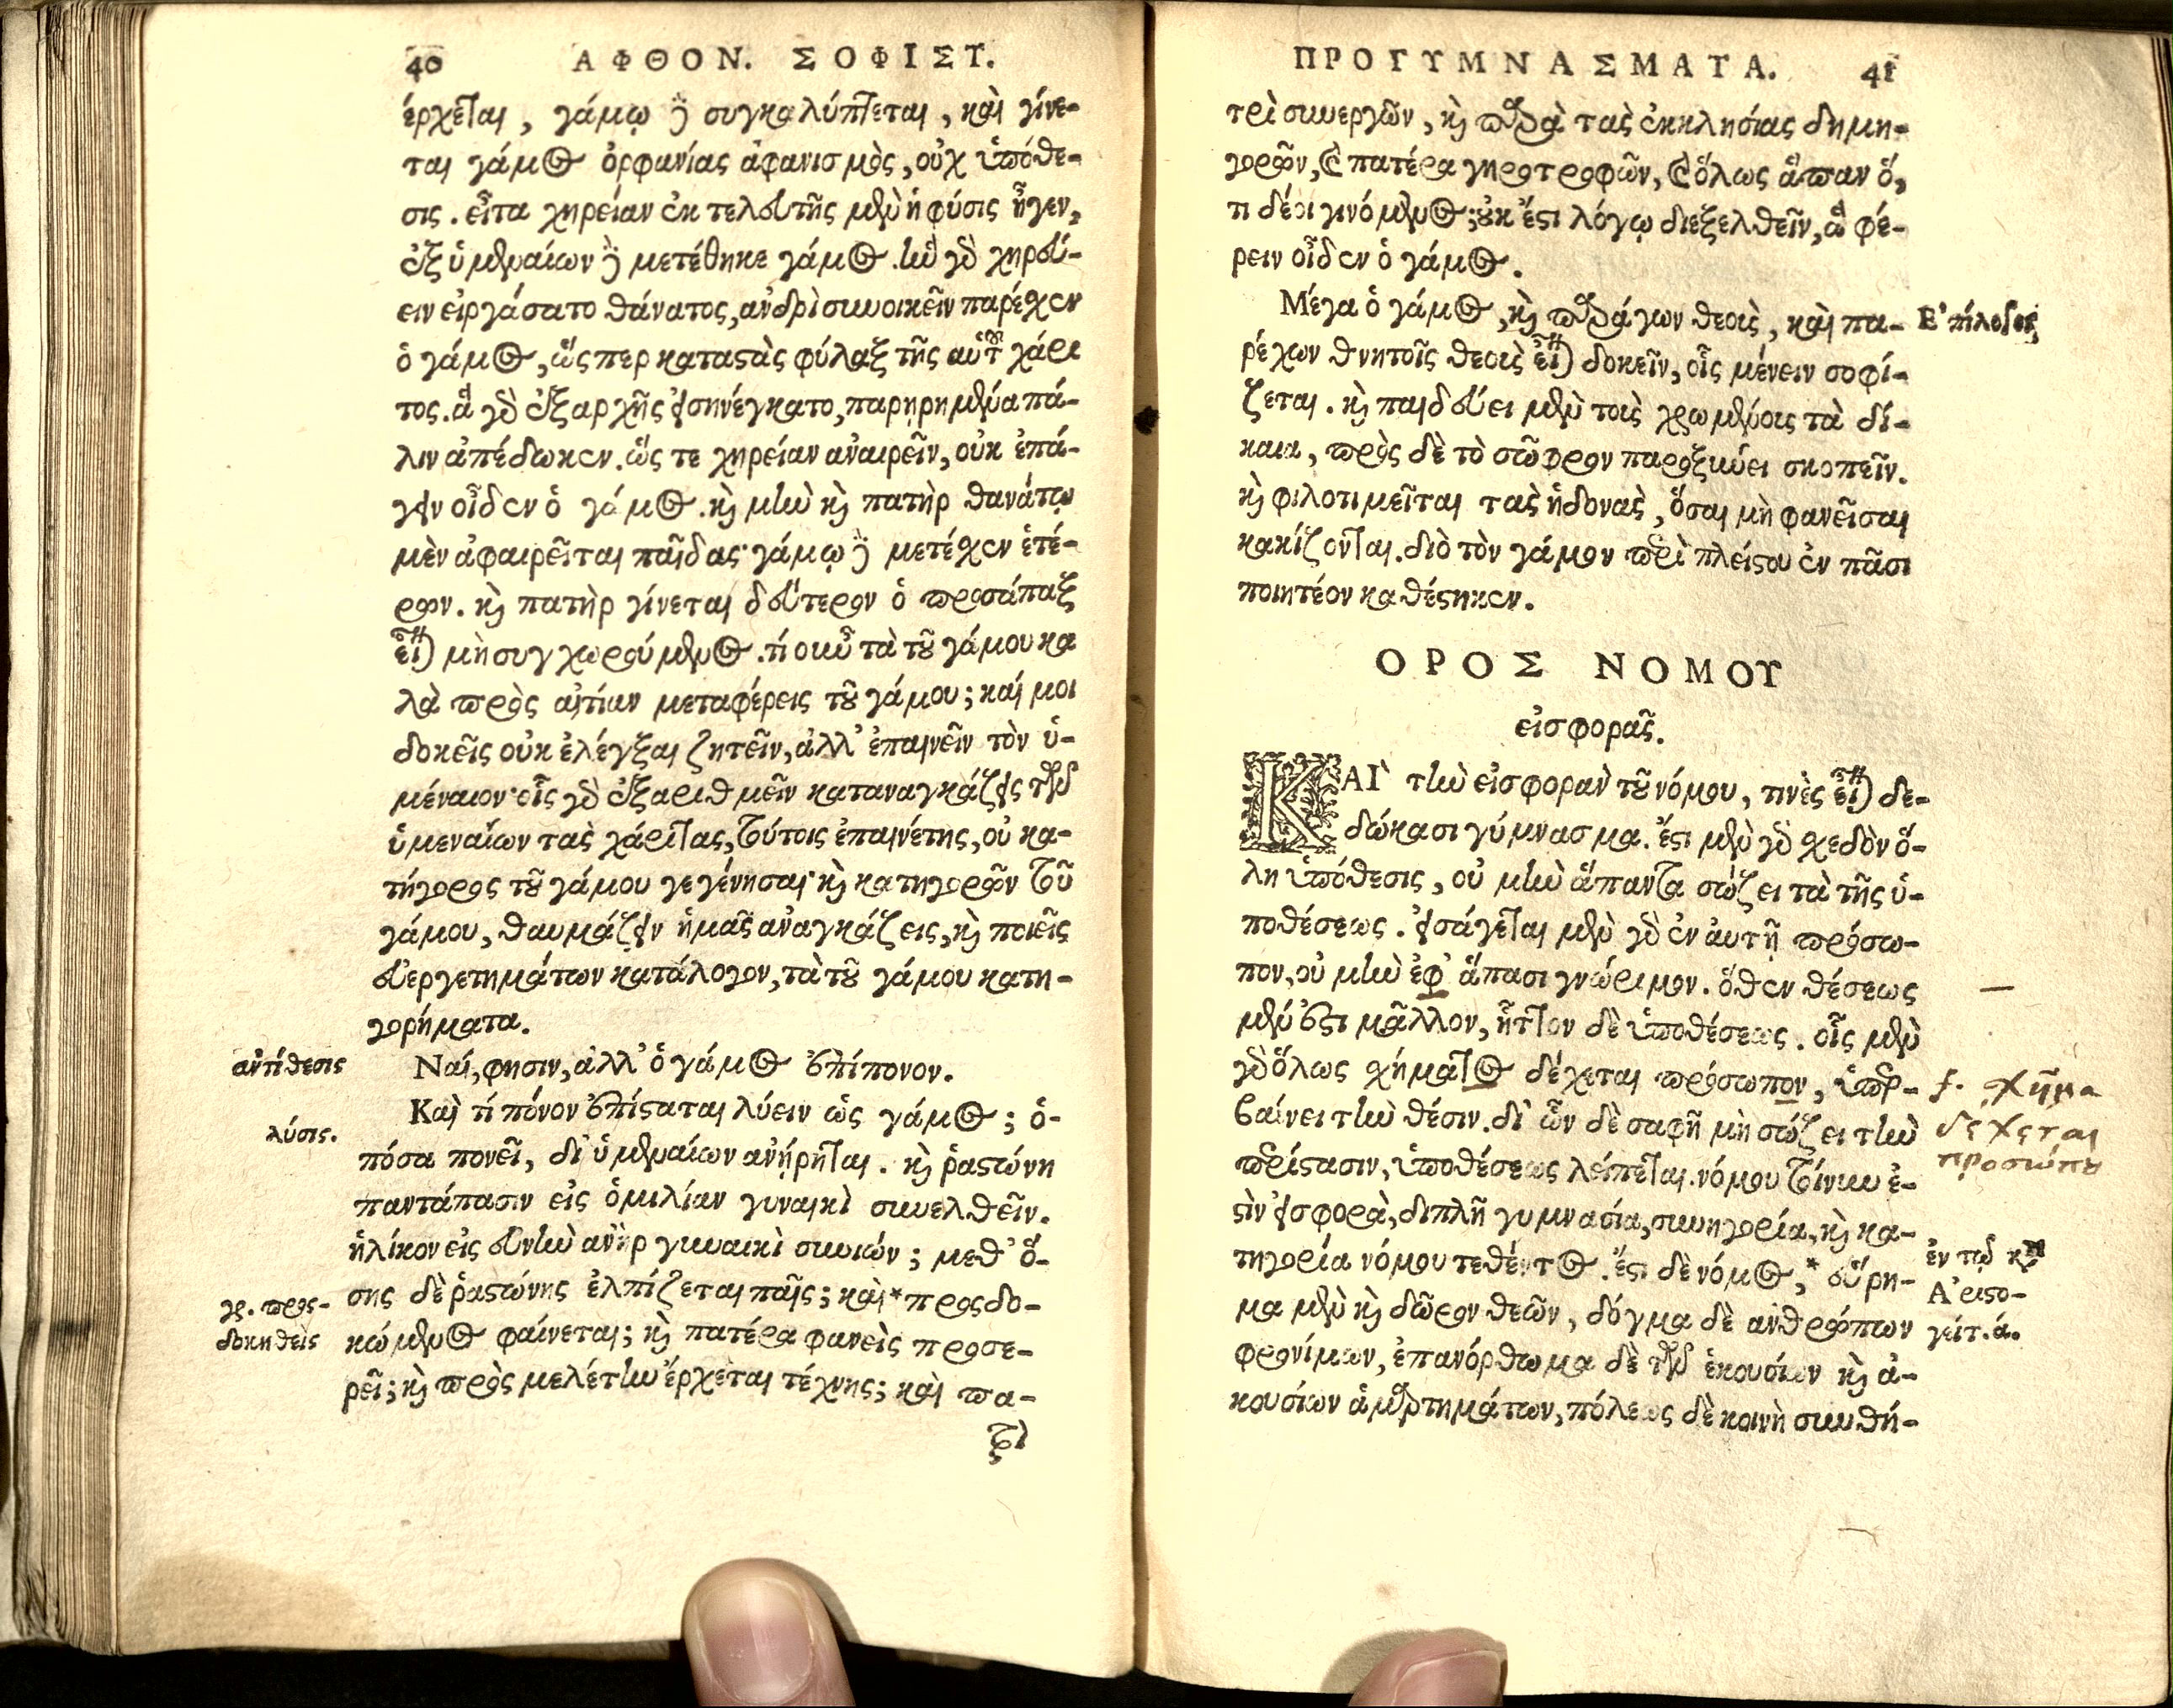 40 ΑΦΘΟΝ. ΣΟΦΙΣΤ.
έρχεται, γάμῳ δὲ συγκαλύπτεται, καὶ γίνε-
ται γάμος ὀρφανίας ἀφανισμὸς, οὐχ ὑπόθε-
σις. εἶτα χηρείαν ἐκ τελευτῆς μὲν ἡ φύσις ἦγεν,
ἐξ ὑμεναίων δὲ μετέθηκε γάμος. ἣν γὰρ χηρεύ-
ειν εἰργάσατο θάνατος, ἀνδρὶ συνοικεῖν παρέχεν
ὁ γάμος, ὥςπερ καταστὰς φύλαξ τῆς αὐτοῦ χάρι
τος. ἃ γὰρ ἐξαρχῆς εἰσηνέγκατο, παρηρημένα πά-
λιν ἀπέδωκεν. ὥς τε χηρείαν ἀναιρεῖν, οὐκ ἐπά-
γειν οἶδεν ὁ γάμος. καὶ μὴν καὶ πατὴρ θανάτῳ
μὲν ἀφαιρεῖται παῖδας· γάμῳ δὲ μετέχεν ἑτέ-
ρων. καὶ πατὴρ γίνεται δεύτερον ὁ προσάπαξ
εἶναι μὴ συγχωρούμενος. τί οὖν τὰ τοῦ γάμου κα
λὰ πρὸς αἰτίαν μεταφέρεις τοῦ γάμου; καί μοι
δοκεῖς οὐκ ἐλέγξαι ζητεῖν, ἀλλ' ἐπαινεῖν τὸν ὑ-
μέναιον· οἷς γὰρ ἐξαριθμεῖν καταναγκάζεις τῶν
ὑμεναίων τὰς χάριτας, τούτοις ἐπαινέτης, οὐ κα-
τήγορος τοῦ γάμου γεγένησαι· καὶ κατηγορῶν τοῦ
γάμου, θαυμάζειν ἡμᾶς ἀναγκάζεις, καὶ ποιεῖς
εὐεργετημάτων κατάλογον, τὰ τοῦ γάμου κατη-
γορήματα.
ἀντίθεσις
Ναί, φησιν, ἀλλ' ὁ γάμος ἐπίπονον.
λύσις.
Καὶ τί πόνον ἐπίσταται λύειν ὡς γάμος; ὁ-
πόσα πονεῖ, δι' ὑμεναίων ἀνῄρηται. καὶ ῥαστώνη
παντάπασιν εἰς ὁμιλίαν γυναικὶ συνελθεῖν.
ἡλίκον εἰς εὐνὴν ἀνὴρ γυναικὶ συνιών; μεθ' ὅ-
σης δὲ ῥαστώνης ἐλπίζεται παῖς; καὶ *προςδο-
γρ. προς-
δοκηθεὶς
κώμενος φαίνεται; καὶ πατέρα φανεὶς προσε-
ρεῖ; καὶ πρὸς μελέτην ἔρχεται τέχνης; καὶ πα-
τρὶ
ΠΡΟΓΥΜΝΑΣΜΑΤΑ. 41
τρὶ συνεργῶν, καὶ παρὰ τὰς ἐκκλησίας δημη-
γορῶν, καὶ πατέρα γηροτροφῶν, καὶ ὅλως ἅπαν ὅ,
τι δέοι γινόμενος; οὐκ ἔστι λόγῳ διεξελθεῖν, ἃ φέ-
ρειν οἶδεν ὁ γάμος.
Μέγα ὁ γάμος, καὶ παράγων θεοὺς, καὶ πα-
Ἐπίλογος
ρέχων θνητοῖς θεοὺς εἶναι δοκεῖν, οἷς μένειν σοφί-
ζεται. καὶ παιδεύει μὲν τοὺς χρωμένοις τὰ δί-
καια, πρὸς δὲ τὸ σῶφρον παροξύνει σκοπεῖν.
καὶ φιλοτιμεῖται τὰς ἡδονὰς, ὅσαι μὴ φανεῖσαι
κακίζονται. διὸ τὸν γάμον περὶ πλείστου ἐν πᾶσι
ποιητέον καθέστηκεν.
ΟΡΟΣ ΝΟΜΟΥ
εἰσφορᾶς.
ΚΑΙ τὴν εἰσφορὰν τοῦ νόμου, τινὲς εἶναι δε-
δώκασι γύμνασμα. ἔστι μὲν γὰρ σχεδὸν ὅ-
λη ὑπόθεσις, οὐ μὴν ἅπαντα σώζει τὰ τῆς ὑ-
ποθέσεως. εἰσάγεται μὲν γὰρ ἐν αὐτῇ πρόσω-
πον, οὐ μὴν ἐφ' ἅπασι γνώριμον. ὅθεν θέσεως
μέν ἐστι μᾶλλον, ἧττον δὲ ὑποθέσεως. οἷς μὲν
γὰρ ὅλως σχήματος δέχεται πρόσωπον, ὑπερ-
f. σχῆμα
δέχεται
προσώπου
βαίνει τὴν θέσιν. δι' ὧν δὲ σαφῆ μὴ σώζει τὴν
περίστασιν, ὑποθέσεως λείπεται. νόμου τοίνυν ἐ-
στὶν εἰσφορὰ, διπλῆ γυμνασία, συνηγορία, καὶ κα-
τηγορία νόμου τεθέντος. ἔστι δὲ νόμος, * εὕρη-
ἐν τῷ κατ
Ἀριστο-
γείτ. ά.
μα μὲν καὶ δῶρον θεῶν, δόγμα δὲ ἀνθρώπων
φρονίμων, ἐπανόρθωμα δὲ τῶν ἑκουσίων καὶ ἀ-
κουσίων ἁμαρτημάτων, πόλεως δὲ κοινὴ συνθή-